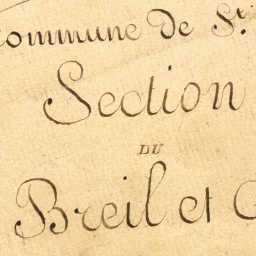 Commune De St.
Section
DU
Breil et